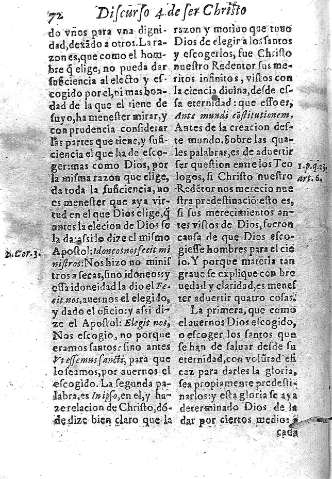 72 Discurso 4. de ser Christo
do vnos para vna digni-
dad, dexado a otros. La ra-
zon es, que como el hom-
bre q̃ elige, no pueda dar
suficiencia al electo y es-
cogido por el, ni mas bon-
dad de la que el tiene de
suyo, ha menester mirar, y
con prudencia considerar
las partes que tiene, y sufi-
ciencia el que ha de esco-
ger: mas como Dios, por
la misma razon que elige,
da toda la suficiencia, no
es menester que aya vir-
tud en el que Dios elige, q̃
antes la elecion de Dios se
la da: asi lo dize el mismo
Apostol: Idoneos nos fecit mi
nistros: Nos hizo no minis-
tros a secas, sino idoneos: y
esta idoneidad la dio el Fe-
cit nos, auernos el elegido,
y dado el oficio: y assi di-
ze el Apostol: Elegit nos,
Nos escogio, no porque
eramos santos: sino antes
Vt essemus sancti, para que
lo seamos, por auernos el
escogido. La segunda pa-
labra, es In ipso, en el, y ha-
ze relacion de Christo, dõ-
de dize bien claro que la
2. Cor. 3.
razon y motiuo que tuuo
Dios de elegir a los santos
y escogerlos, fue Christo
nuestro Redentor sus me-
ritos infinitos, vistos con
la ciencia diuina, desde es-
sa eternidad: que esso es,
Ante mundi cõstitutionem,
Antes de la creacion des-
te mundo. Sobre las qua-
les palabras, es de aduertir
ser question entre los Teo
logos, si Christo nuestro
Redẽtor nos merecio nue
stra predestinació: esto es,
si sus merecimientos an-
tes vistos de Dios, fueron
causa de que Dios esco-
giesse hombres para el cie
lo. Y porque materia tan
graue se explique con bre
uedad y claridad, es menes
ter aduertir quatro cosas.
La primera, que como
el auernos Dios escogido,
o escoger los santos que
se han de saluar desde su
eternidad, con volũtad efi
caz para darles la gloria,
sea propiamente predesti-
narlos: y esta gloria se aya
determinado Dios de la
dar por ciertos medios:
cada
1. p. q. 23.
art. 6.